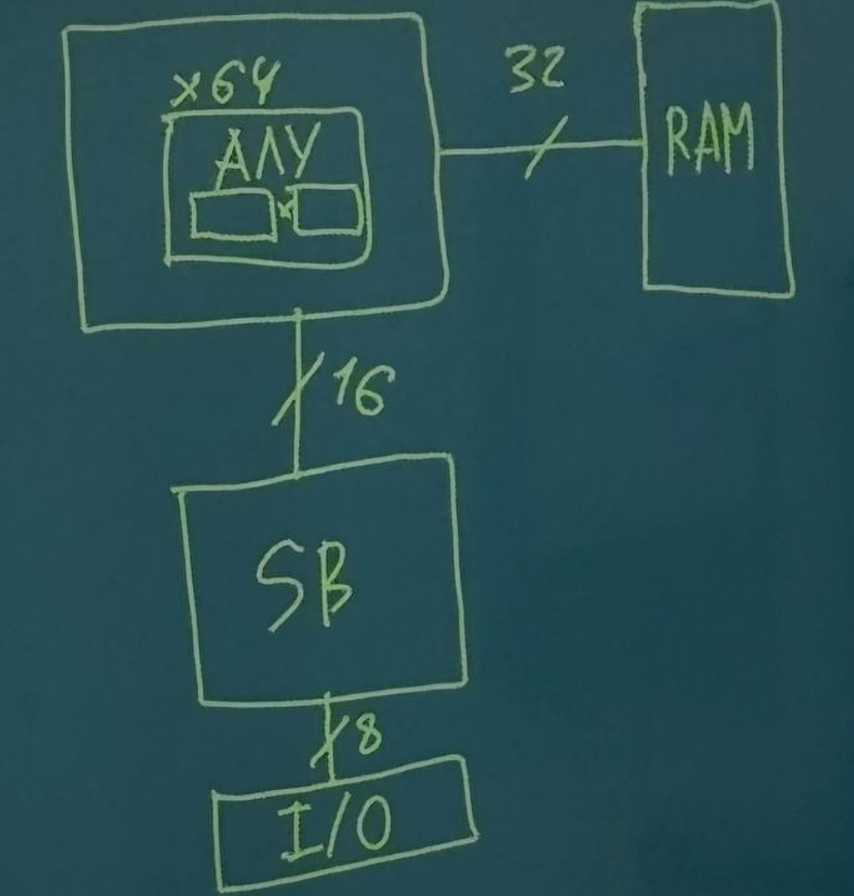 x64
АЛУ
x
32
RAM
16
SB
8
I/O